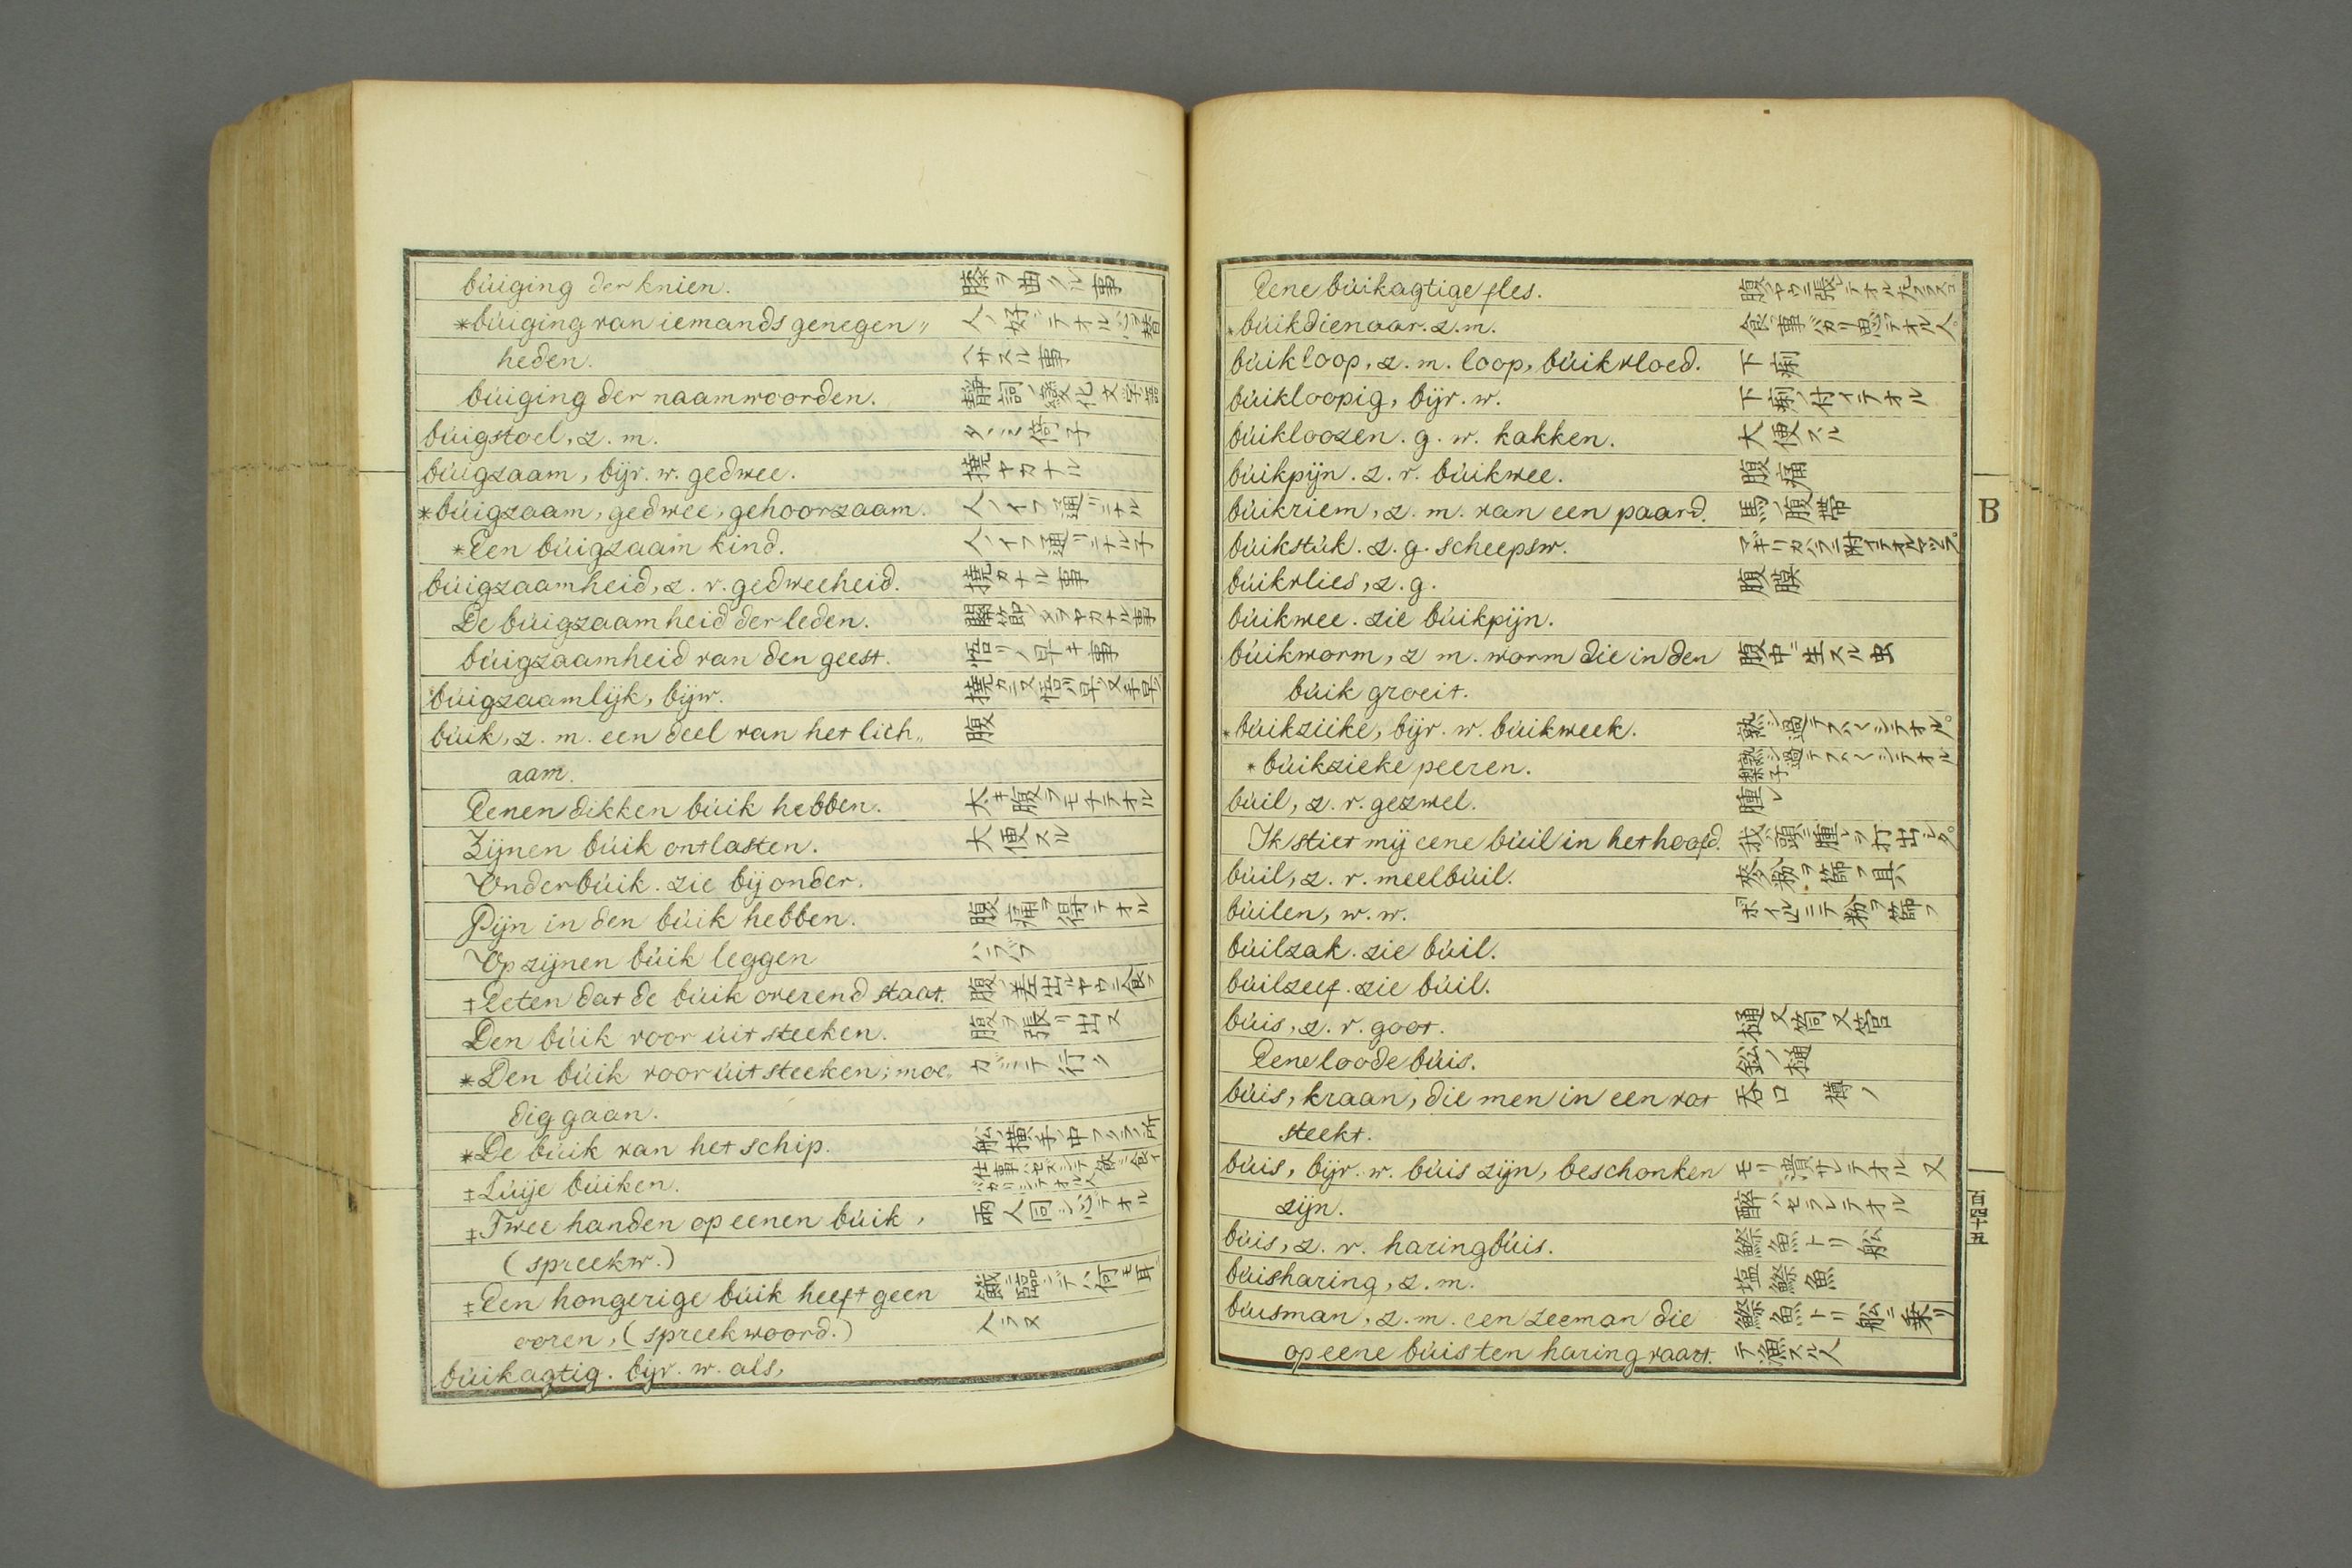 búiging der knien. 膝ヲ曲クル事
*búiging van iemands genegen„ 人ノ好シテオル
heden. ヘサスル事
búiging der naamwoorden. 静詞ノ變化 文学語
búigstoel, z. m. タヽミ倚子
búigzaam, bijv. w. gedwee. 撓ヤカナル
*búigzaam, gedwee, gehoorzaam. 人ノイフ通リニナル
*Een búigzaam kind. 人ノイフ通リニナル子
búigzaamheid, z. v. gedweeheid. 撓カナル事
De búigzaamheid der leden. 關節ノシナヤカナル事
búigzaamheid van den geest. 悟リノ早キ事
búigzaamlijk, bijw. 撓カニ又悟リ早ク又手早ク
búik, z. m. een deel van het lich„ 腹
aam.
Eenen dikken búik hebben. 大キ腹ヲモチテオル
Zijnen búik ontlasten. 大便スル
Onderbúik. zie bij onder.
Pijn in den búik hebben. 腹痛ヲ得テオル
Op zijnen búik leggen ハラバフ
‡Eeten dat de búik overend staat. 腹ノ差出ルヤウニ食フ
Den búik voor úit steeken. 腹ヲ張リ出ス
*Den búik voor úit steeken; moe„ テ行ク
dig gaan.
*De búik van het schip. 舩ノ横手ノ中フクラノ所
‡Lúije búiken. 仕事ハセズシテ飲ミ食イバカリシテオル人
‡Twee handen op eenen búik, 兩人同シ心デオル
(spreekw.)
‡Een hongerige búik heeft geen 餓ニ臨ンデハ何モ耳ニ
ooren, (spreekwoord.) イラヌ
búikagtig. bijv. w. als,
Eene búikagtige fles. 腹ヤウニ張シテオルフラスコ
*búikdienaar. z. m. 食事バカリ思テオル人。
búikloop, z. m. loop, búikvloed. 下痢
búikloopig, bijv. w. 下痢ノ付イテオル
búikloozen. g. w. kakken. 大便スル
búikpijn. z. v. búikwee. 腹痛
búikriem, z. m. van een paard. 馬ノ腹帯
búikstúk. z. g. scheepsw.
búikvlies, z. g. 腹膜
búikwee. zie búikpijn.
búikworm, z m. worm die in den 腹中ニ生スル虫
búik groeit.
*búikziike, bijv. w. búikweek. 熟シ過テフハ〳〵シテオル。
*búikzieke peeren. 熟シ過テフハ〳〵シテオル梨子
búil, z. v. gezwel. 腫レ
Ik stiet mij eene búil in het hoofd. 我頭ニ腫レヲ打出シタ。
búil, z. v. meelbúil. 麥粉ヲ篩フ具
búilen, w. w. ボイルニテ粉ヲ篩フ
búilzak. zie búil.
búilzeef. zie búil.
búis, z. v. goot. 樋 又 筒 又 管
Eene loode búis. 鈆ノ樋
búis, kraan, die men in een vat 呑口 樽ノ
steekt.
búis, bijv. w. búis zijn, beschonken モリ潰サレテオル 又
zijn. 醉ハセラレテオル
búis, z. v. haringbúis. 鰶魚トリ舩
búisharing, z. m. 塩鰶魚
búisman, z. m. een zeeman die 鰶魚トリ舩ニ乗リ
op eene búis ten haring vaart. テ漁スル人
B
百四十五